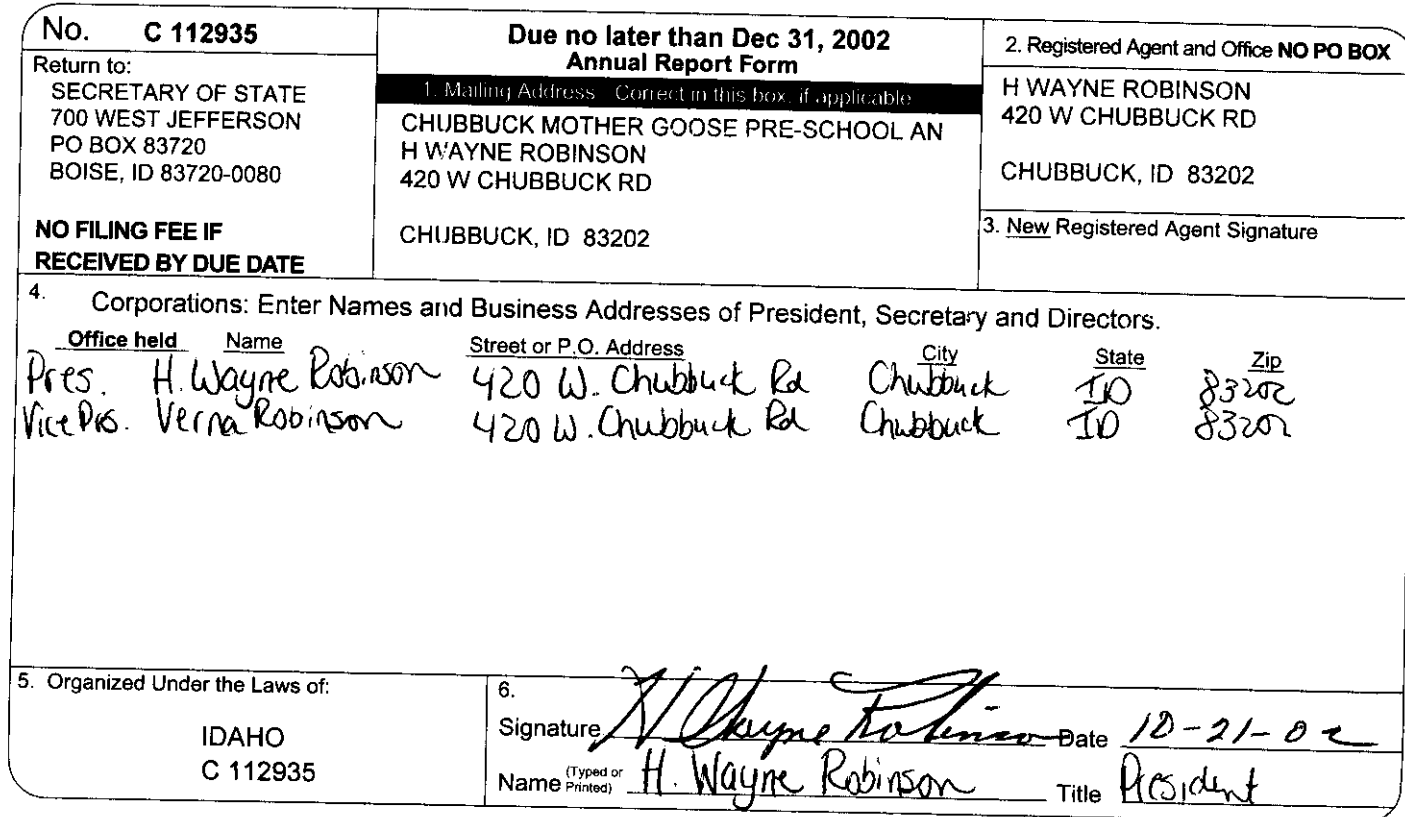 No. C 112935
Return to:
SECRETARY OF STATE
700 WEST JEFFERSON
PO BOX 83720
BOISE, ID 83720-0080
NO FILING FEE IF
RECEIVED BY DUE DATE
Due no later than Dec 31, 2002
Annual Report Form
1. Mailing Address Correct in this box, if applicable
CHUBBUCK MOTHER GOOSE PRE-SCHOOL AN
H WAYNE ROBINSON
420 W CHUBBUCK RD
CHUBBUCK, ID 83202
2. Registered Agent and Office NO PO BOX
H WAYNE ROBINSON
420 W CHUBBUCK RD
CHUBBUCK, ID 83202
3. New Registered Agent Signature
4. Corporations: Enter Names and Business Addresses of President, Secretary and Directors.
Office held Name Street or P.O. Address City State Zip
Pres. H. Wayne Robinson 420 W. Chubbuck Rd Chubbuck ID 83202
Vice Pres. Verna Robinson 420 W. Chubbuck Rd Chubbuck ID 83202
5. Organized Under the Laws of:
IDAHO
C 112935
6.
Signature H Wayne Robinson Date 10-21-02
Name (Typed or Printed) H. Wayne Robinson Title President